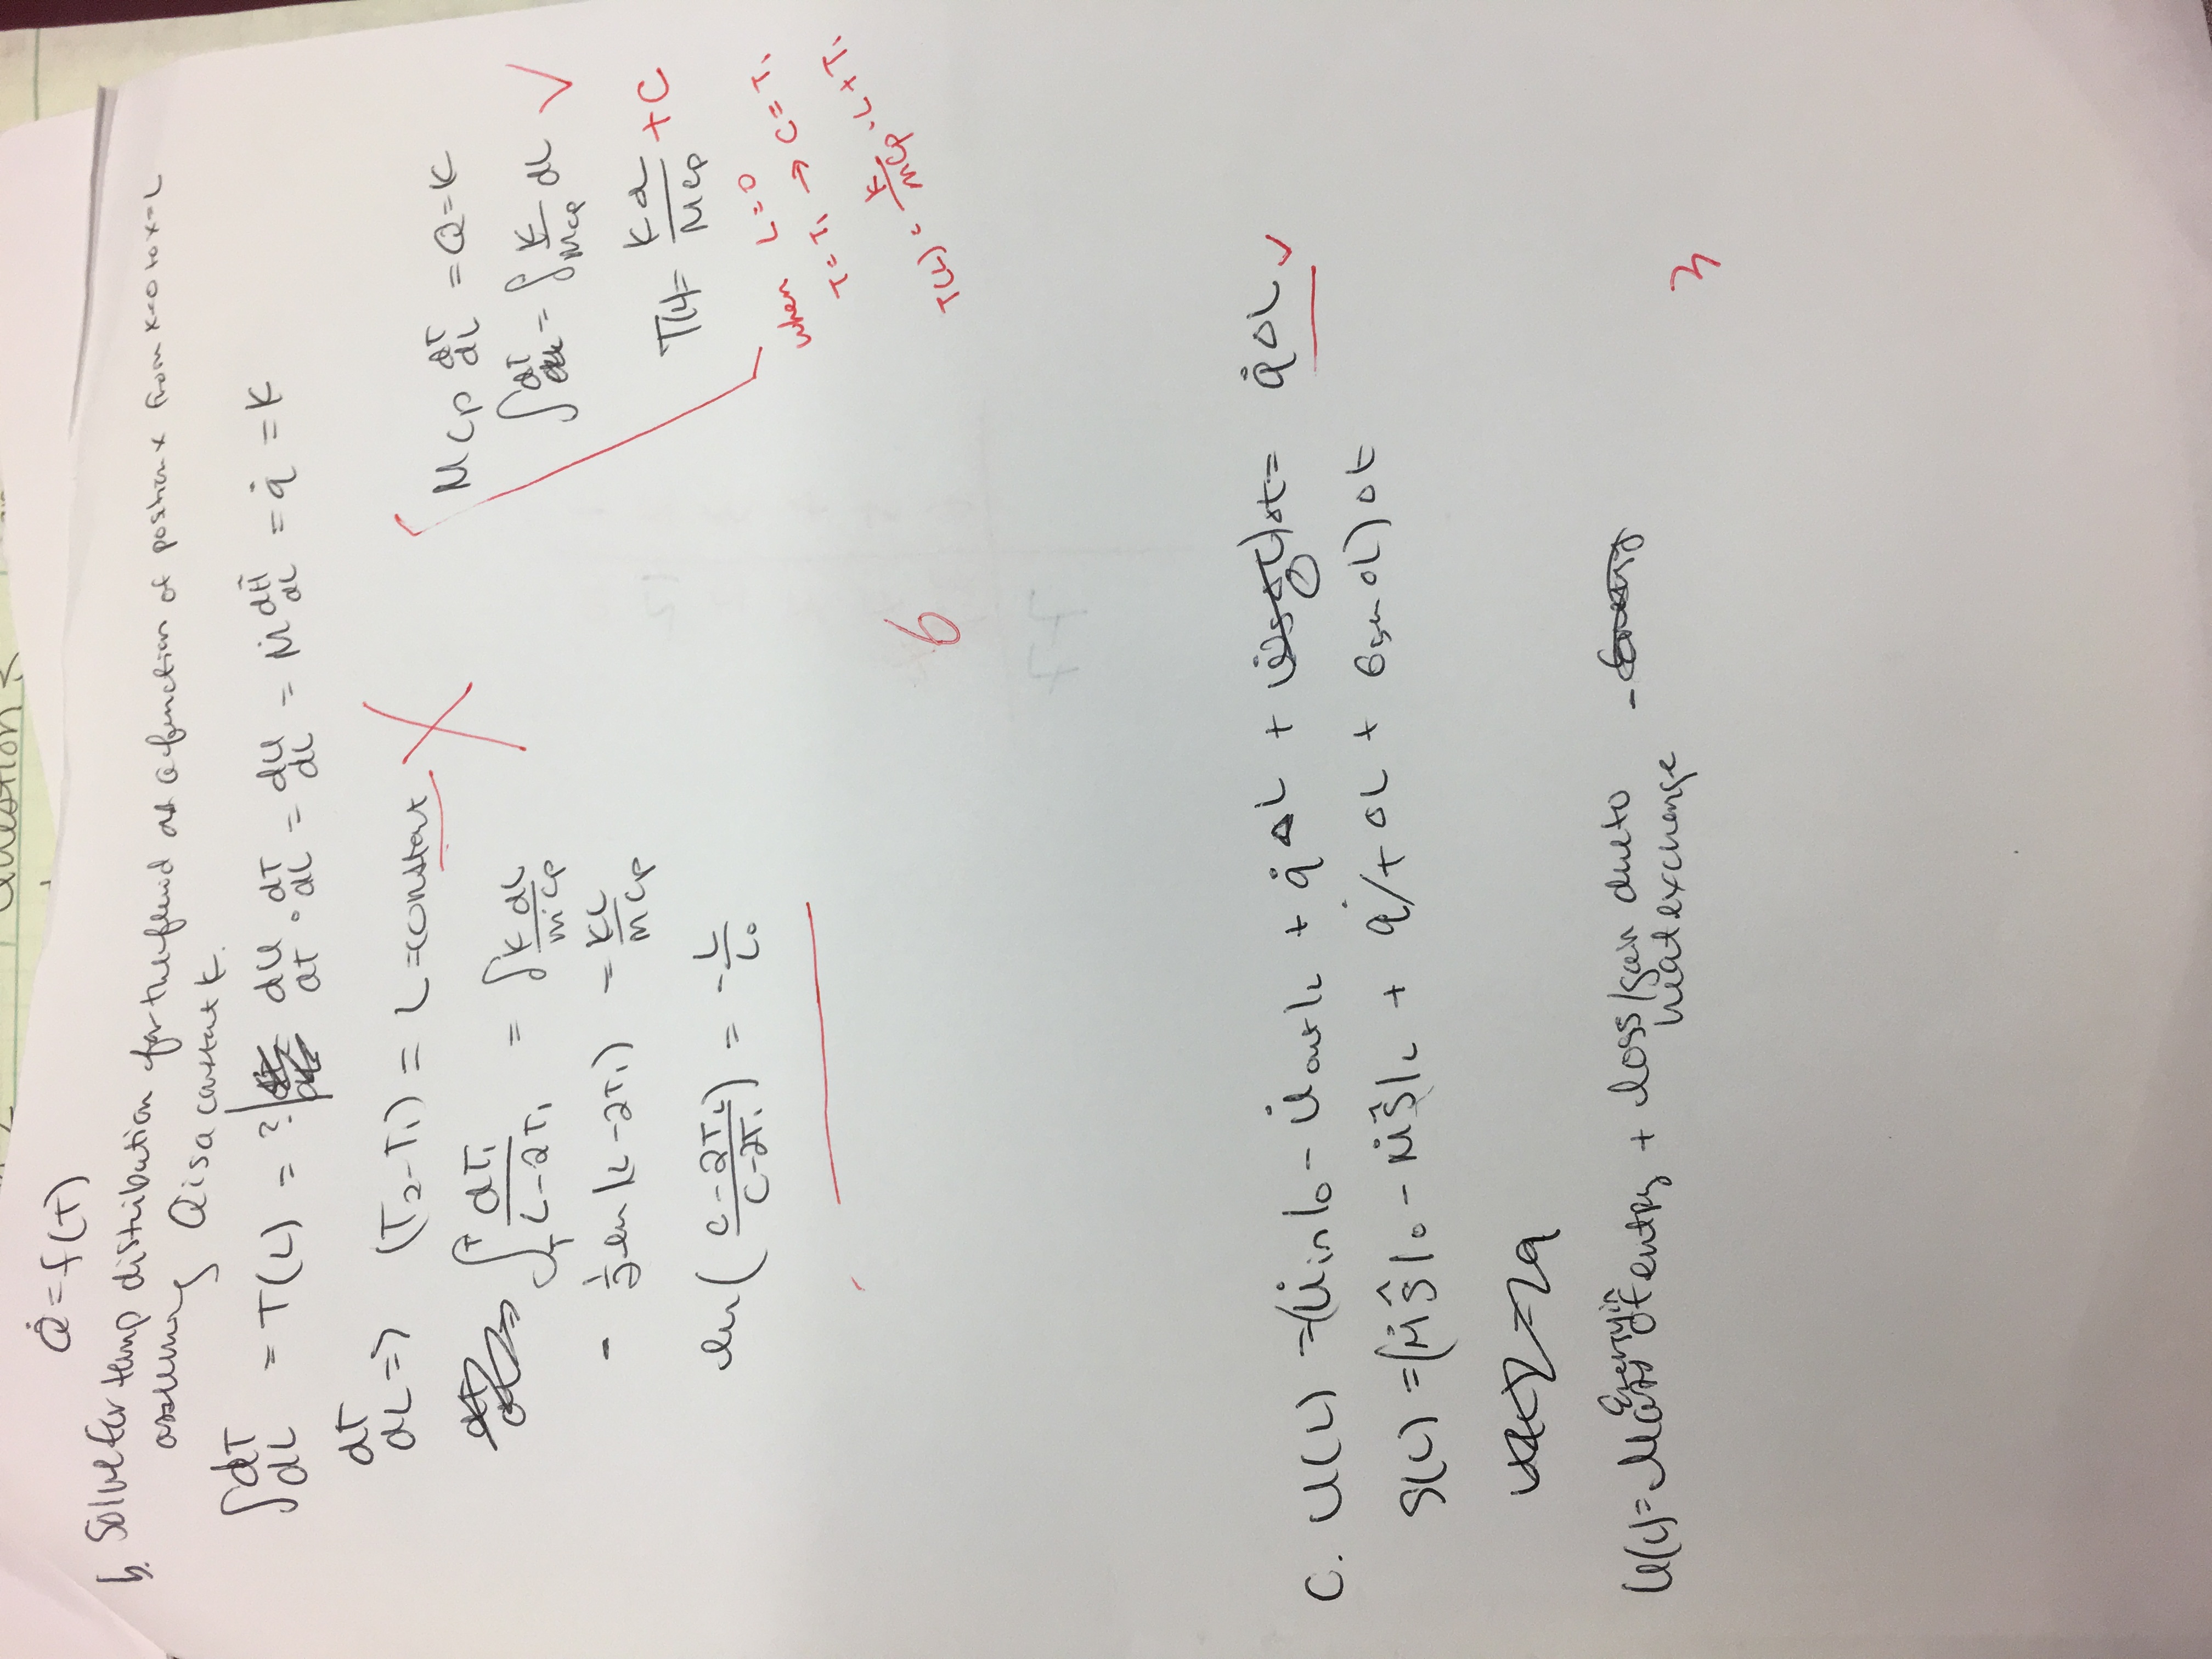 Question
Q̇ = f(T)
b. Solve for temp distribution for the fluid as a function of position x from x=0 to x=L
assuming Q is a constant K.
∫ dT/dL = T(L) = ? | dU/dT · dT/dL = dU/dL = Ṁ dĤ/dL = q̇ = K
dT/dL => (T₂-T₁) = L = constant
∫ dT₁/(L-2T₁) = ∫ K dL/ṁCp
- ½ ln(L-2T₁) = KL/mCp
ln((C-2T_L)/(C-2T₁)) = -L/L₀
MCp dT/dL = Q = K
∫ dT = ∫ K/MCp dL
T(L) = KL/MCp + C
when L=0
T=T₁ → C=T₁
T(L) = K/mCp · L + T₁
6
C. U(L) = (U̇in|₀ - U̇out|L + q̇ΔL + ẇsΔL)Δt = q̇ΔL
0
S(L) = (ṀŜ|₀ - ṀŜ|L + q̇/T ΔL + σgen ΔL)Δt
Energy in
U(L) = Mass of entry + loss/gain due to
heat exchange
3